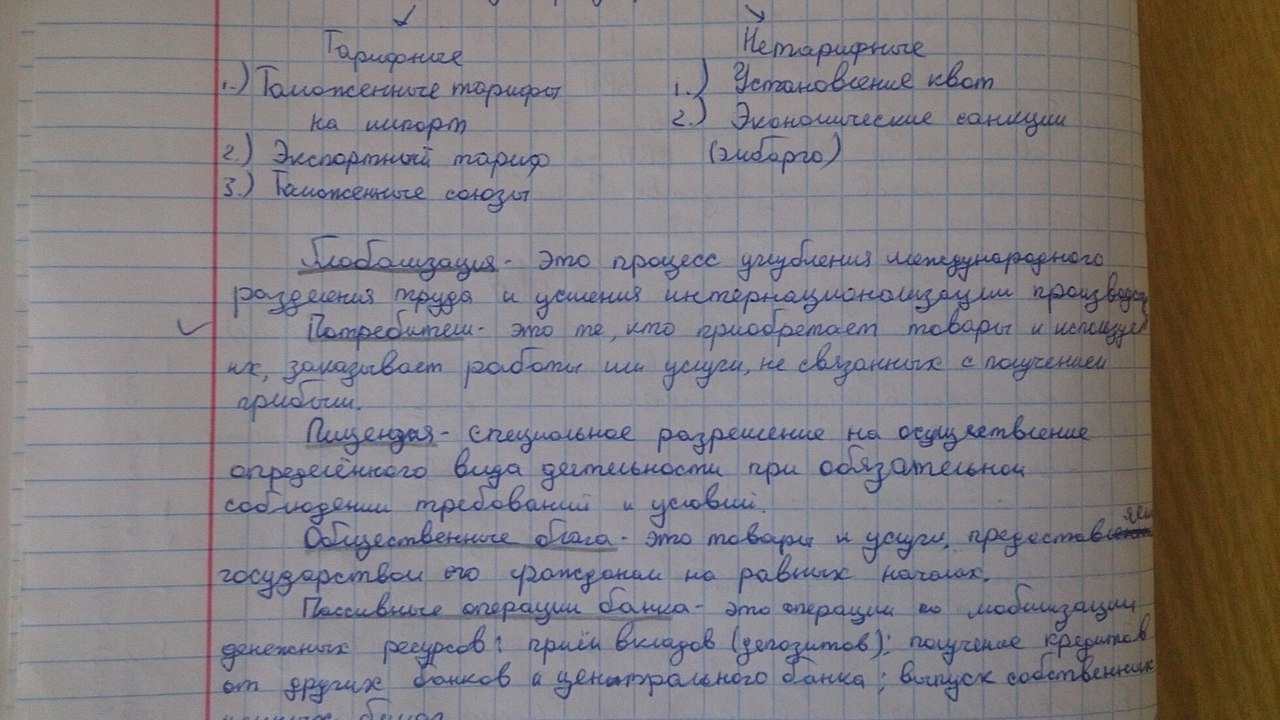 Тарифные Нетарифные
1.) Таможенные тарифы 1.) Установление квот
на импорт 2.) Экономические санкции
2.) Экспортный тариф (эмбарго)
3.) Таможенные союзы
Глобализация - это процесс углубления международного
разделения труда и усиления интернационализации
Потребители - это те, кто приобретает товары и использует
их, заказывает работы или услуги, не связанных с получением
прибыли.
Лицензия - специальное разрешение на осуществление
определённого вида деятельности при обязательном
соблюдении требований и условий.
Общественные блага - это товары и услуги,
государством его гражданам на равных началах.
Пассивные операции банка - это операции по мобилизации
денежных ресурсов: приём вкладов (депозитов); получение кредитов
от других банков и центрального банка; выпуск собственных